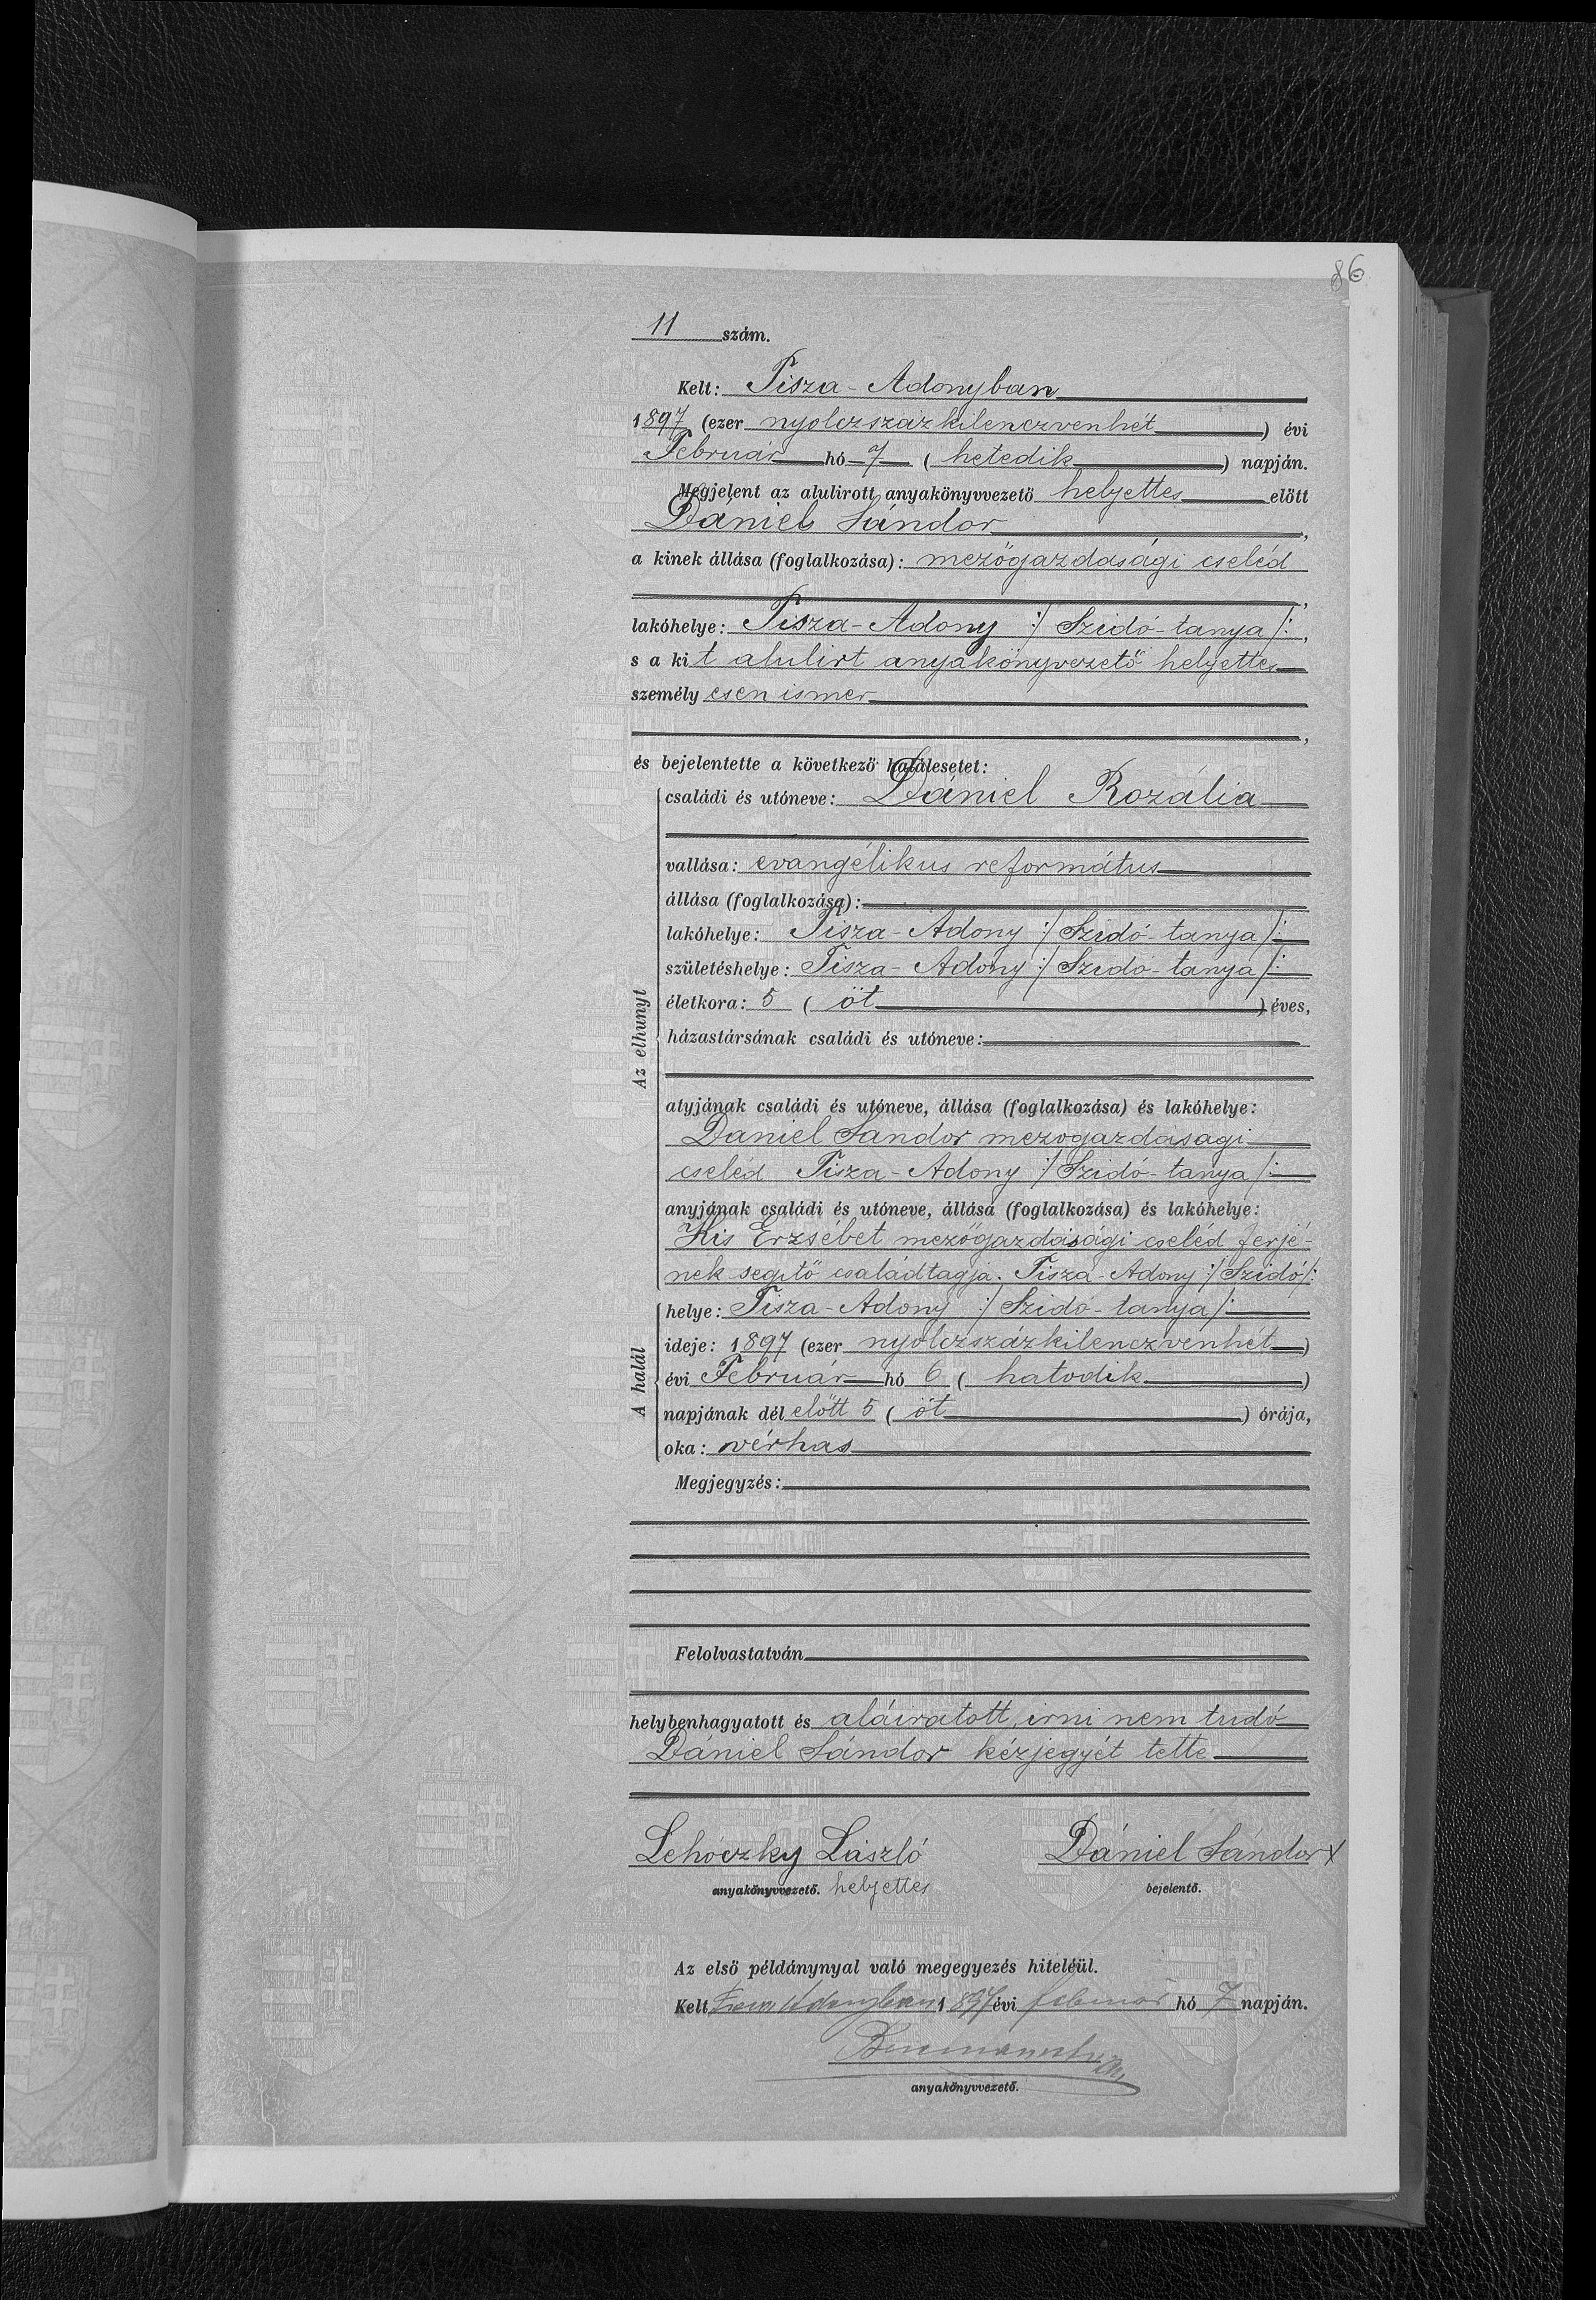 86
11 szám.
Kelt: Tisza-Adonyban
1897 (ezer nyolczszázkilenczvenhét) évi
Február hó 7 (hetedik) napján.
Megjelent az alulirott anyakönyvvezető helyettes előtt
Dániel Sándor,
a kinek állása (foglalkozása): mezőgazdasági cseléd
,
lakóhelye: Tisza-Adony :/ Szidó-tanya /:,
s a kit alulirt anyakönyvezető helyettes
személyesen ismer
,
és bejelentette a következő halálesetet:
Az elhunyt
családi és utóneve: Dániel Rozália
vallása: evangélikus református
állása (foglalkozása):
lakóhelye: Tisza-Adony :/ Szidó-tanya /:
születéshelye: Tisza-Adony :/ Szidó-tanya /:
életkora: 5 (öt) éves,
házastársának családi és utóneve:
atyjának családi és utóneve, állása (foglalkozása) és lakóhelye:
Dániel Sándor mezőgazdasági
cseléd Tisza-Adony :/ Szidó-tanya /:
anyjának családi és utóneve, állása (foglalkozása) és lakóhelye:
Kis Erzsébet mezőgazdasági cseléd ferjé-
nek segitő családtagja. Tisza-Adony :/ Szidó /:
A halál
helye: Tisza-Adony :/ Szidó-tanya /:
ideje: 1897 (ezer nyolczszázkilenczvenhét)
évi Február hó 6 (hatodik)
napjának délelőtt 5 (öt) órája,
oka: vérhas
Megjegyzés:
Felolvastatván
helybenhagyatott és aláiratott, irni nem tudó
Dániel Sándor kézjegyét tette
Lehoczky László Dániel Sándor x
anyakönyvvezető. helyettes bejelentő.
Az első példánynyal való megegyezés hiteléül.
Kelt Tisza Adonyban 1897 évi február hó 7 napján.
anyakönyvvezető.